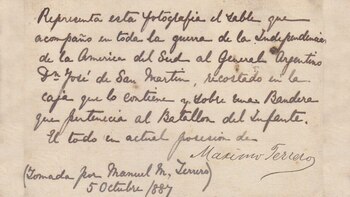 Representa esta fotografia el sable que
acompaño en toda la guerra de la Independencia
de la America del Sud al General Argentino
Dn José de San Martin, recostado en la
caja que lo contiene y sobre una Bandera
que pertenecia al Batallon del Infante.
El todo en actual posesion de
Maximo Terrero
(Tomada por Manuel M. Terrero
5 Octubre/887